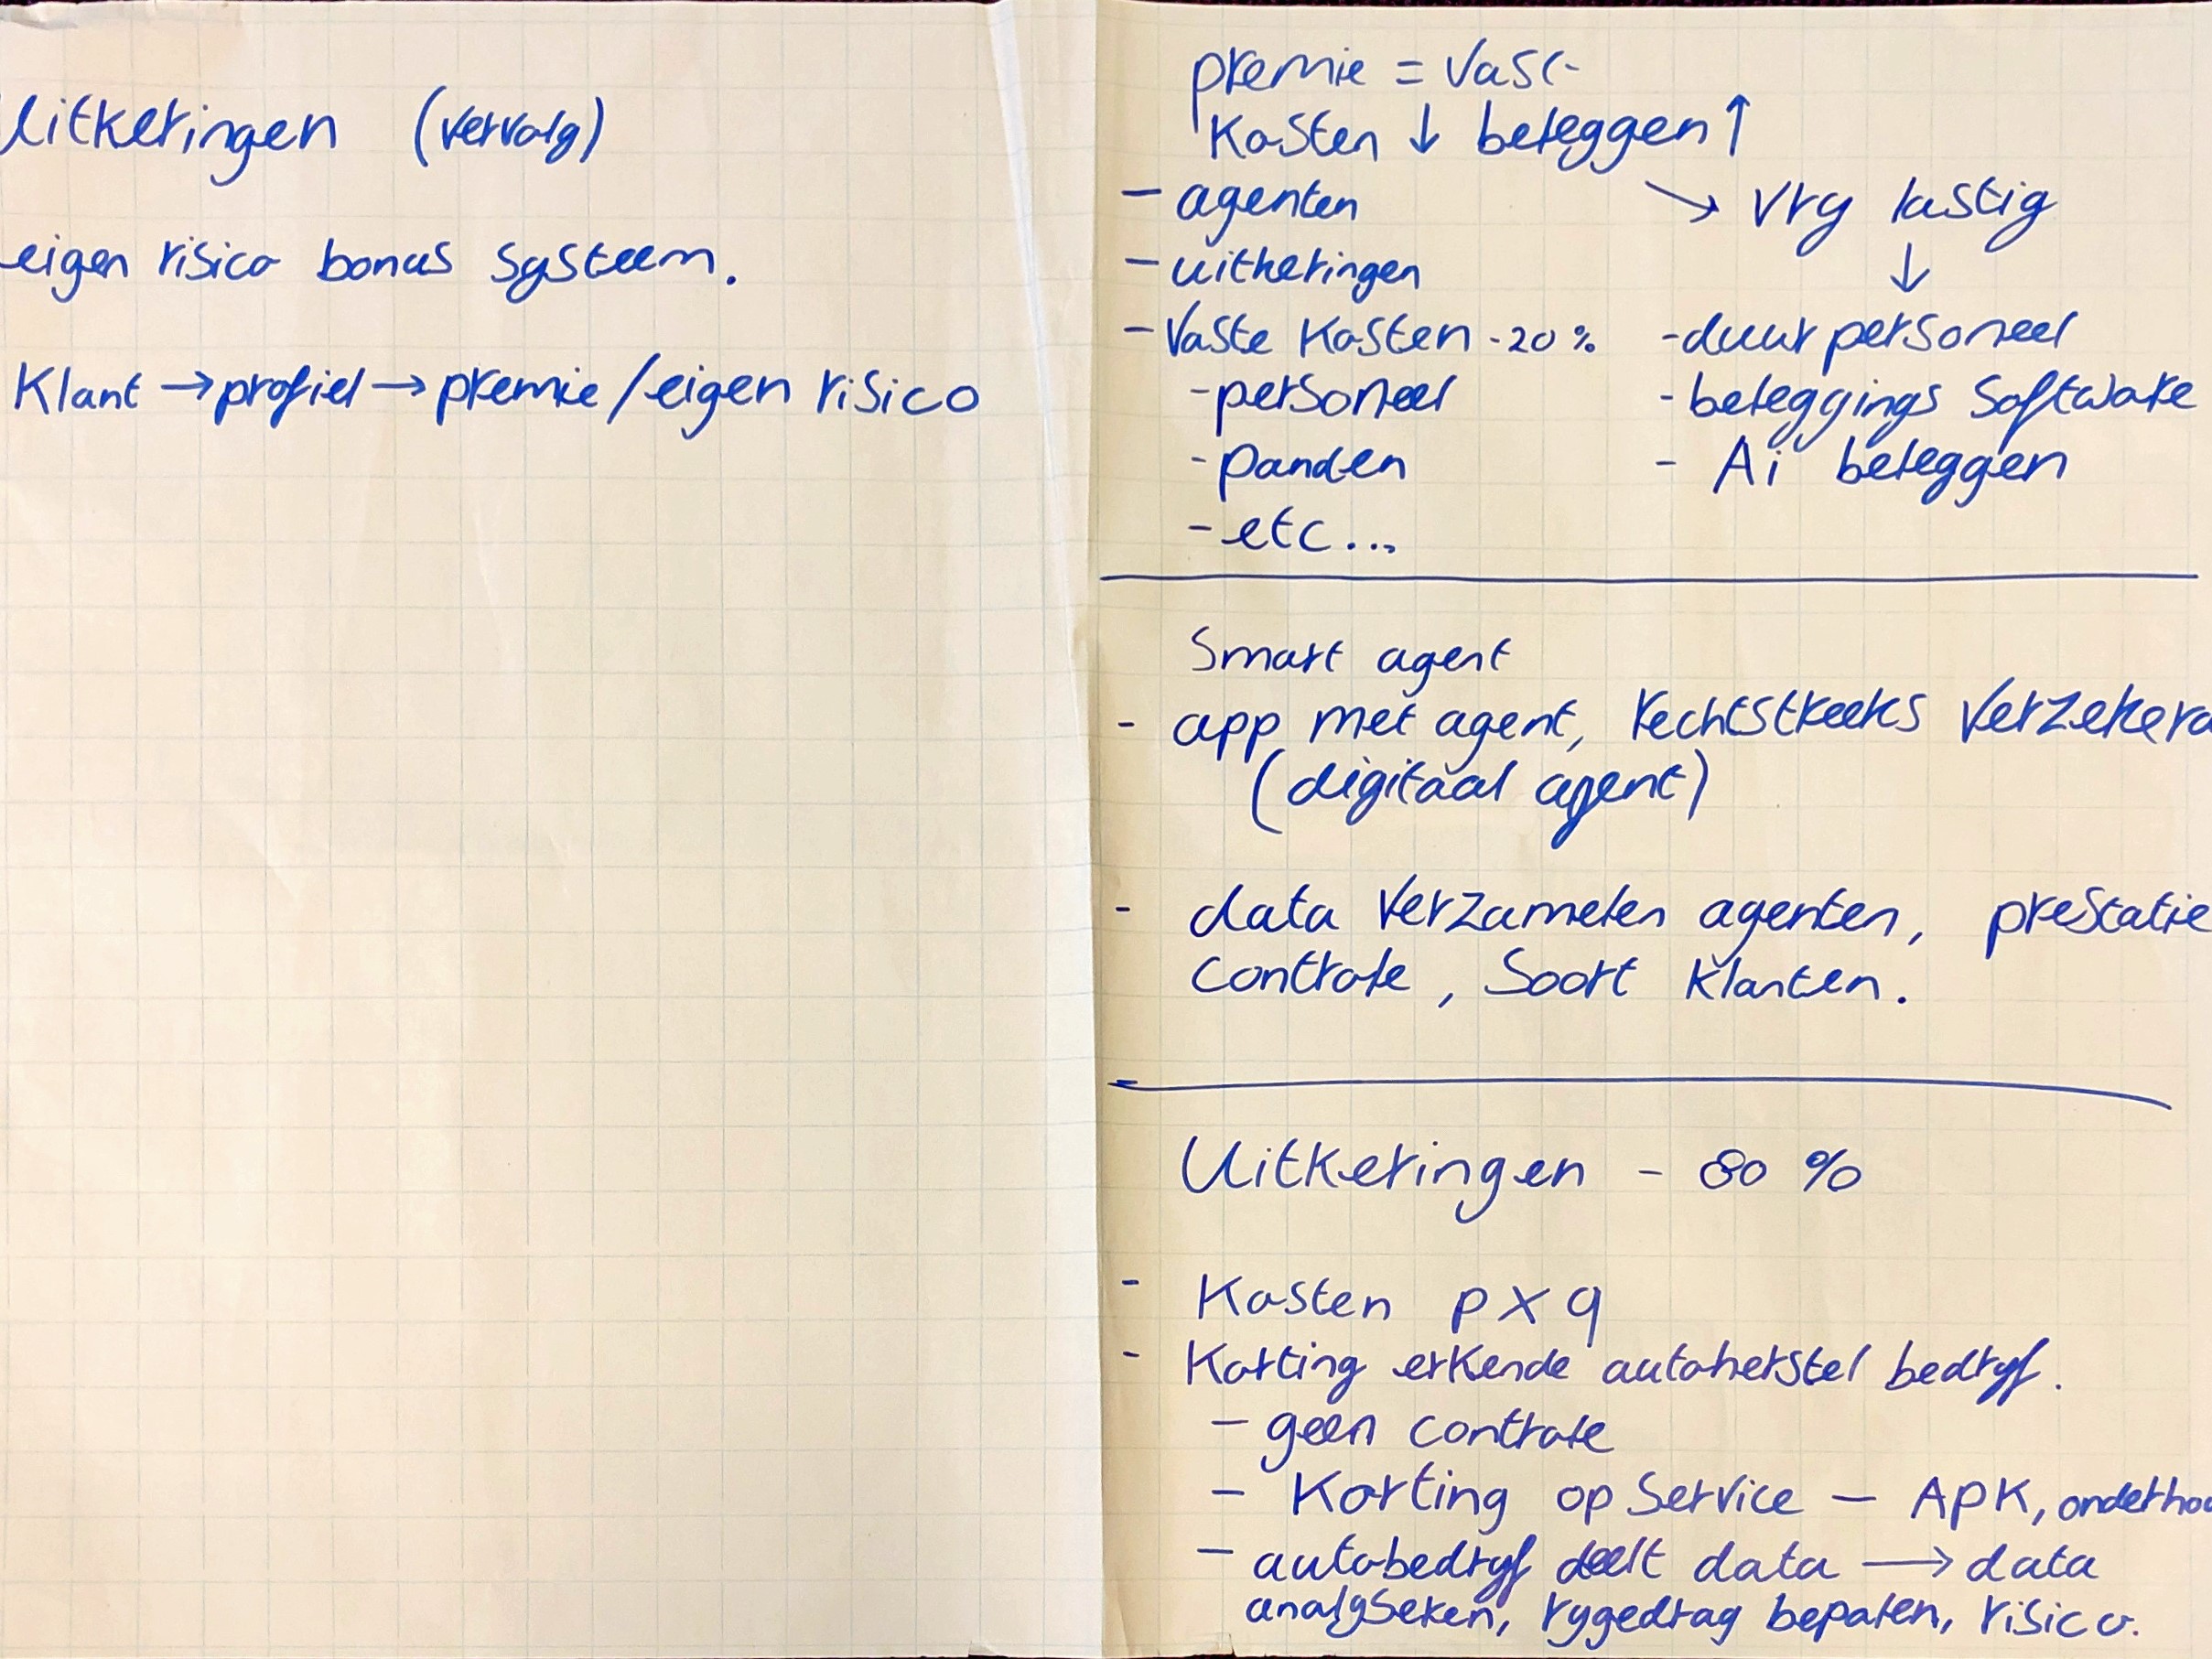 Uitkeringen (vervolg)
eigen risico bonus systeem.
Klant → profiel → premie / eigen risico
premie = Vast
Kosten ↓ beleggen ↑
- agenten → Vry lastig
↓
- uitkeringen
- Vaste Kosten - 20 % - duur personeel
- personeel - beleggings Software
- panden - Ai beleggen
- etc...
Smart agent
- app met agent, rechtstreeks
(digitaal agent)
- data Verzamelen agenten, prestatie
Controle, Soort Klanten.
Uitkeringen - 80 %
- Kosten p x q
- Korting erkende autoherstel bedryf.
- geen controle
- Korting op Service - APK,
- autobedryf deelt data → data
analyseren, rygedrag bepalen, risico.